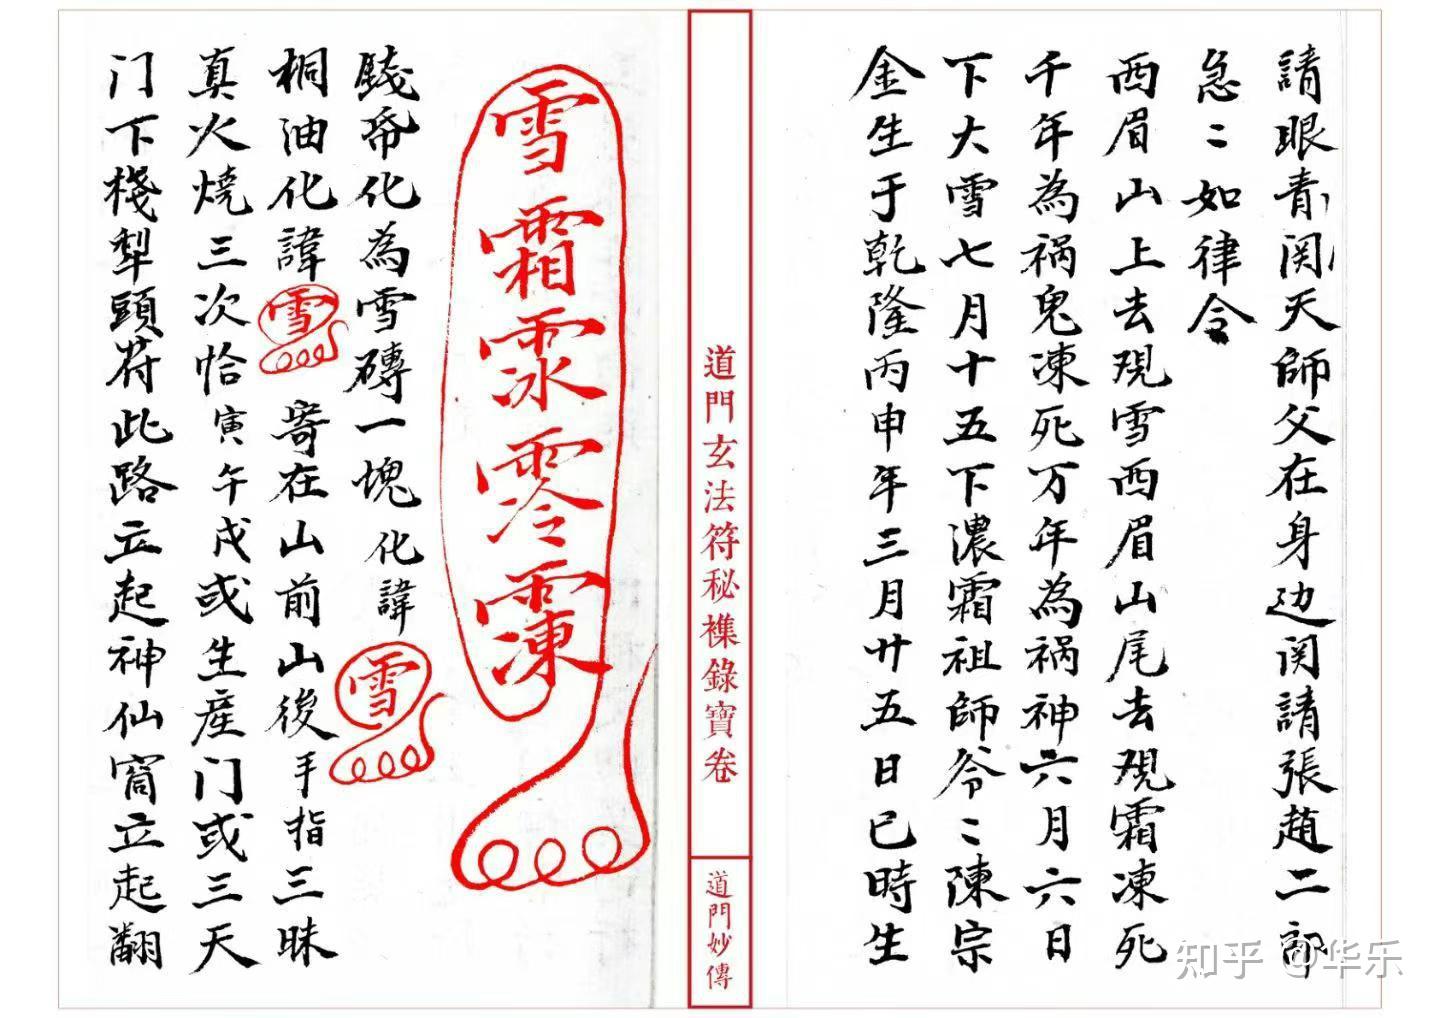 請眼青闵天師父在身边闵請張趙二郎
急〻如律令
西眉山上去覌雪西眉山尾去覌霜凍死
千年為祸鬼凍死万年為祸神六月六日
下大雪七月十五下濃霜祖師爷〻陳宗
金生于乾隆丙申年三月廿五日巳時生
道門玄法符秘襍錄寶卷
道門妙傳
雪霜䨓零凍
錢帋化為雪磚一塊化諱雪
桐油化諱雪寄在山前山後手指三昧
真火燒三次恰寅午戌或生産门或三天
门下棧犁頭符此路立起神仙窩立起翻
知乎 @华乐